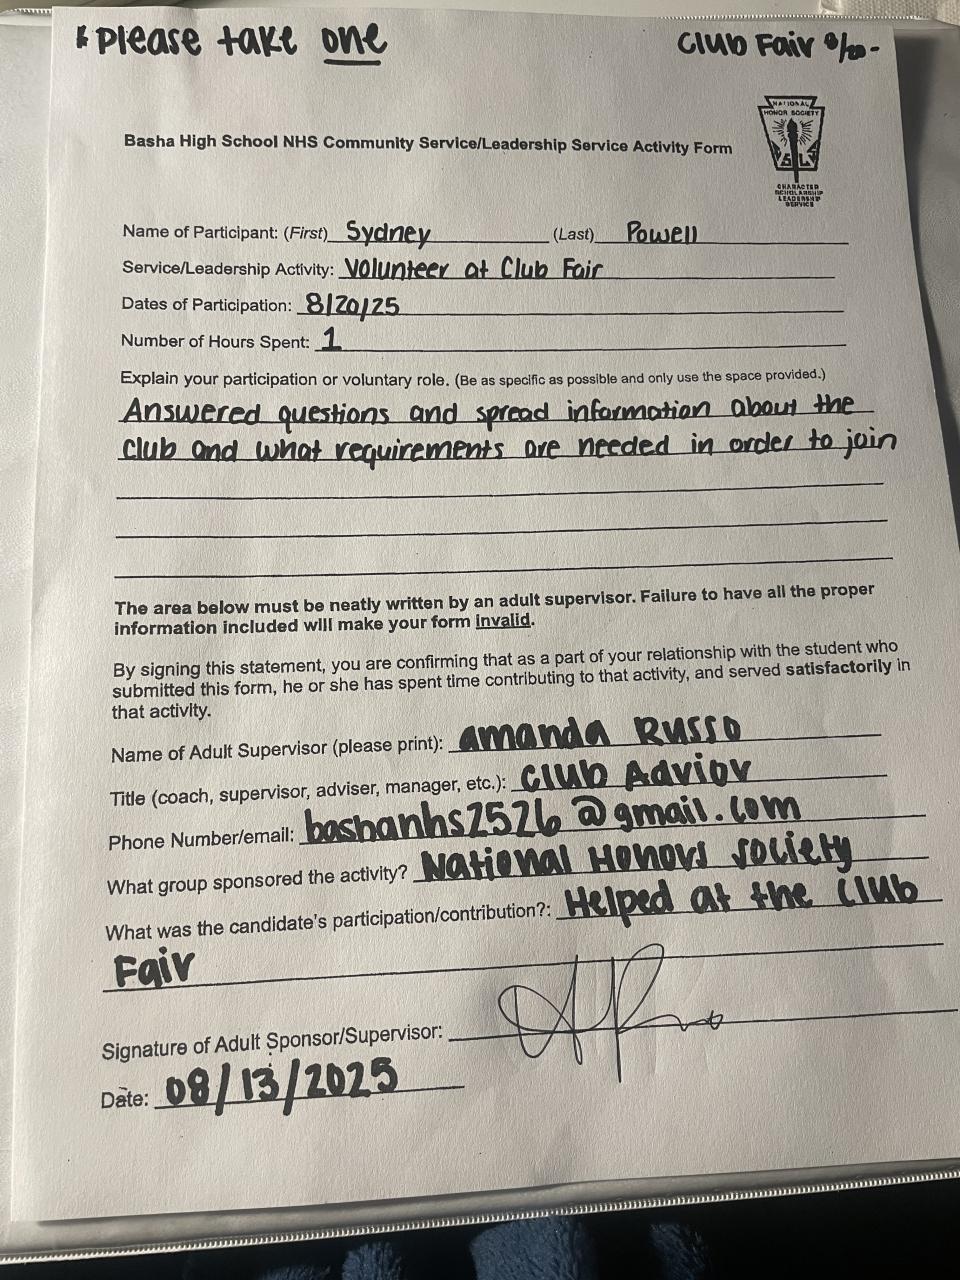 * Please take one
Club Fair 8/20-
NATIONAL
HONOR SOCIETY
S L
CHARACTER
SCHOLARSHIP
LEADERSHIP
SERVICE
Basha High School NHS Community Service/Leadership Service Activity Form
Name of Participant: (First) Sydney (Last) Powell
Service/Leadership Activity: Volunteer at Club Fair
Dates of Participation: 8/20/25
Number of Hours Spent: 1
Explain your participation or voluntary role. (Be as specific as possible and only use the space provided.)
Answered questions and spread information about the
club and what requirements are needed in order to join
The area below must be neatly written by an adult supervisor. Failure to have all the proper
information included will make your form invalid.
By signing this statement, you are confirming that as a part of your relationship with the student who
submitted this form, he or she has spent time contributing to that activity, and served satisfactorily in
that activity.
Name of Adult Supervisor (please print): amanda Russo
Title (coach, supervisor, adviser, manager, etc.): Club Advior
Phone Number/email: bashanhs2526@gmail.com
What group sponsored the activity? National Honors Society
What was the candidate's participation/contribution?: Helped at the Club
Fair
Signature of Adult Sponsor/Supervisor:
Date: 08/13/2025